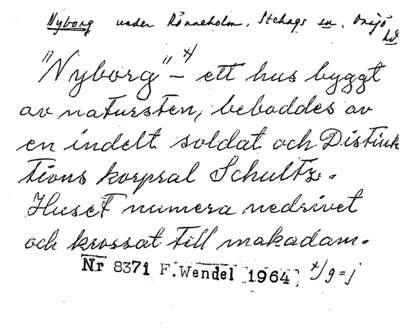 Nyborg under Rönneholm, Stehags sn, Onsjö
hd
"Nyborg" x/ – ett hus byggt
av natursten, beboddes av
en indelt soldat och Distink
tions korpral Schultz.
Huset numera nedrivet
och krossat till makadam.
Nr 8371 F. Wendel 1964, x/ g = j